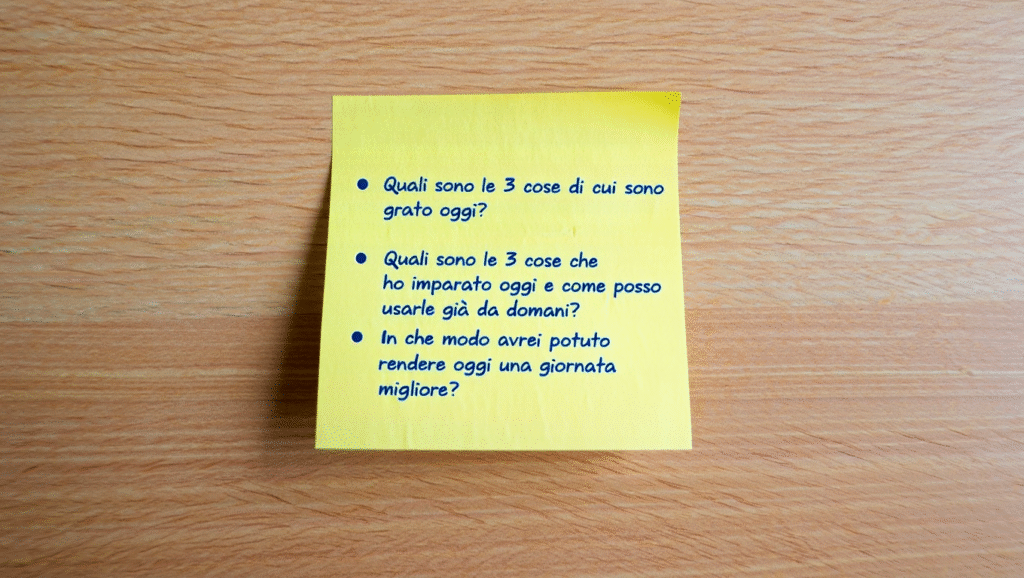 • Quali sono le 3 cose di cui sono
grato oggi?
• Quali sono le 3 cose che
ho imparato oggi e come posso
usarle già da domani?
• In che modo avrei potuto
rendere oggi una giornata
migliore?